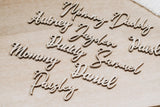 Mommy Daddy
Aubrey Jayden
Daddy Samuel
Mommy Daniel
Paisley